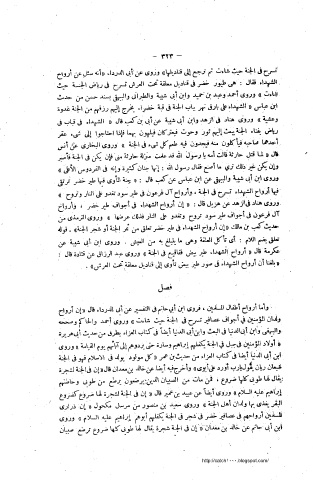 — ٣٢٣ —
تسرح فى الجنة حيث شاءت ثم ترجع إلى قناديلها» وروى عن أبى الدرداء «أنه سئل عن أرواح
الشهداء فقال : هى طيور خضر فى قناديل معلقة تحت العرش تسرح فى رياض الجنة حيث
شاءت » وروى أحمد وعبد بن حميد وابن أبى شيبة والطبرانى والبيهقى بسند حسن من حديث
ابن عباس « الشهداء على بارق نهر بباب الجنة فى قبة خضراء يخرج إليهم رزقهم من الجنة غدوة
وعشية » وروى هناد فى الزهد وابن أبى شيبة عن أبى بن كعب قال « الشهداء فى قباب فى
رياض بفناء الجنة يبعث إليهم ثور وحوت فيعتركان فيلهون بهما فإذا احتاجوا إلى شىء عقر
أحدهما صاحبه فيأكلون منه فيجدون فيه طعم كل شىء فى الجنة » وروى البخارى عن أنس
قال « لما قتل حارثة قالت أمه يا رسول الله قد علمت منزلة حارثة منى فإن يكن فى الجنة أصبر
وإن يكن غير ذلك ترى ما أصنع فقال رسول الله : إنها جنان كثيرة وإنه فى الفردوس الأعلى »
وروى ابن أبى شيبة والبيهقى عن ابن عباس عن كعب قال : « جنة المأوى فيها طير خضر ترتقى
فيها أرواح الشهداء تسرح فى الجنة ، وأرواح آل فرعون فى طير سود تغدو على النار وتروح »
وروى هناد فى الزهد عن هزيل قال : « إن أرواح الشهداء فى أجواف طير خضر ، وأرواح
آل فرعون فى أجواف طير سود تروح وتغدو على النار فذلك عرضها » وروى الترمذى من
حديث كعب بن مالك « إن أرواح الشهداء فى طير خضر تعلق من ثمر الجنة أو شجر الجنة » قوله
تعلق بضم اللام : أى تأكل العلقة وهى ما يتبلغ به من العيش . وروى ابن أبى شيبة عن
عكرمة قال « أرواح الشهداء طير بيض فقاقيع فى الجنة » وروى عبد الرزاق عن قتادة قال :
«بلغنا أن أرواح الشهداء فى صور طير بيض تأوى إلى قناديل معلقة تحت العرش» .
فصل
وأما أرواح أطفال المسلمين ، فروى ابن أبى حاتم فى التفسير عن أبى الدرداء قال «إن أرواح
ولدان المؤمنين فى أجواف عصافير تسرح فى الجنة حيث شاءت» وروى أحمد والحاكم وصححه
والبيهقى وابن أبى الدنيا فى البعث وابن أبى الدنيا أيضاً فى كتاب العزاء بطرق من حديث أبى هريرة
« أولاد المؤمنين فى جبل فى الجنة يكفلهم إبراهيم وسارة حتى يردهم إلى آبائهم يوم القيامة » وروى
ابن أبى الدنيا أيضاً فى كتاب العزاء من حديث ابن عمر « كل مولود يولد فى الإسلام فهو فى الجنة
شبعان ريان يقول يارب أورد على أبوى» وأخرج فيه أيضاً عن خالد بن معدان قال «إن فى الجنة لشجرة
يقال لها طوبى كلها ضروع ، فمن مات من الصبيان الذين يرضعون يرضع من طوبى وحاضنهم
إبراهيم عليه السلام » وروى أيضاً عن عبيد بن عمير قال « إن فى الجنة لشجرة لها ضروع كضروع
البقر يغذى بها ولدان أهل الجنة » وروى سعيد بن منصور من مرسل مكحول « إن ذرارى
المسلمين أرواحهم فى عصافير خضر فى شجر فى الجنة يكفلهم أبوهم إبراهيم عليه السلام » وروى
ابن أبى حاتم عن خالد بن معدان « إن فى الجنة شجرة يقال لها طوبى كلها ضروع ترضع صبيان